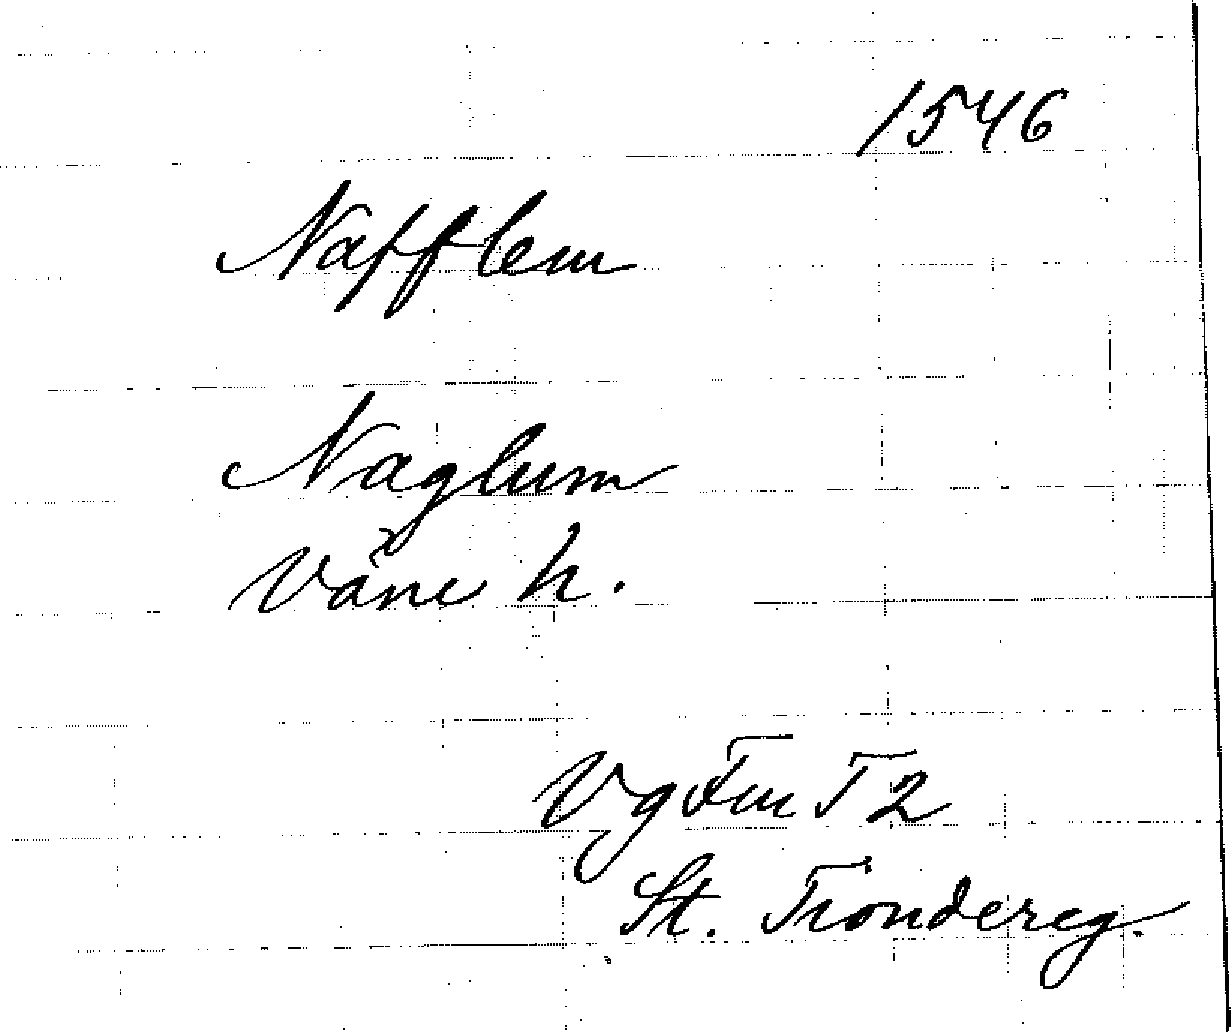 1546
Nafflem
Naglum
Väne h.
Vg Fm T2
St. Tiondereg.